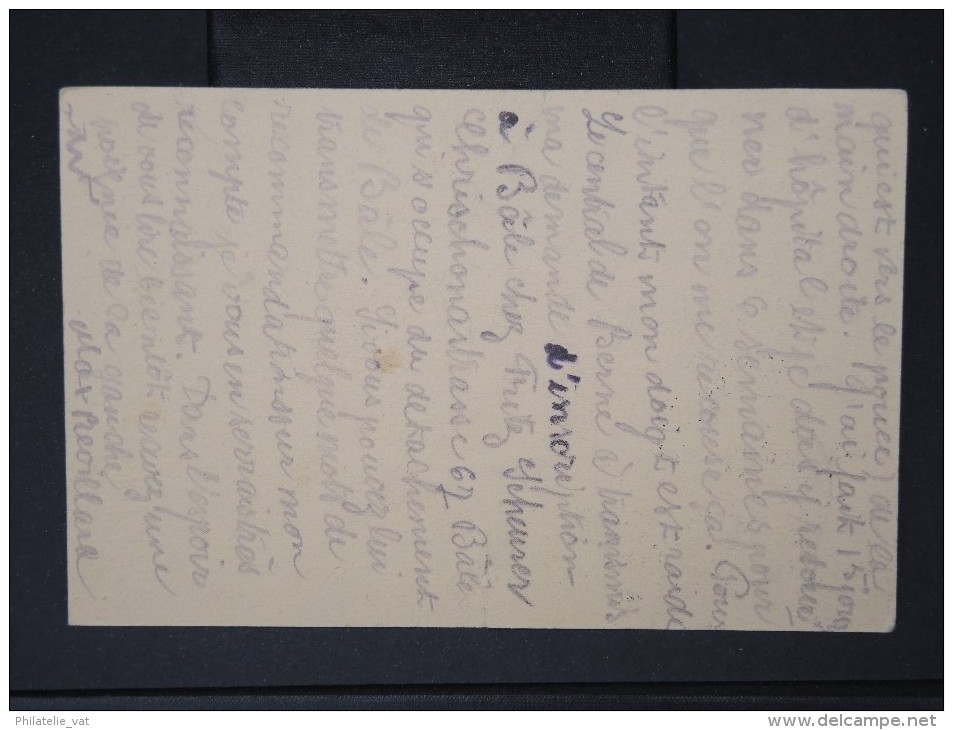 qui est vers le pouce) de la
main droite. J'ai fait 15 jours
d'hôpital et je dois y retour
ner dans 6 semaines pour
que l'on me recouse ça. Pour
l'instant mon doigt est raide
Le central de Berne a transmis
ma demande d'inscription
à Bâle chez Fritz Scheurer
Chrischonastrasse 67 Bâle
qui s'occupe du detachement
de Bâle. Si vous pouvez lui
transmettre quelques mots de
recommandation sur mon
compte je vous en serrai très
reconnaissant. Dans l'espoir
de vous lire bientôt recevez une
poignée de la gauche
Max
Philatelie_vat
www.delcampe.net